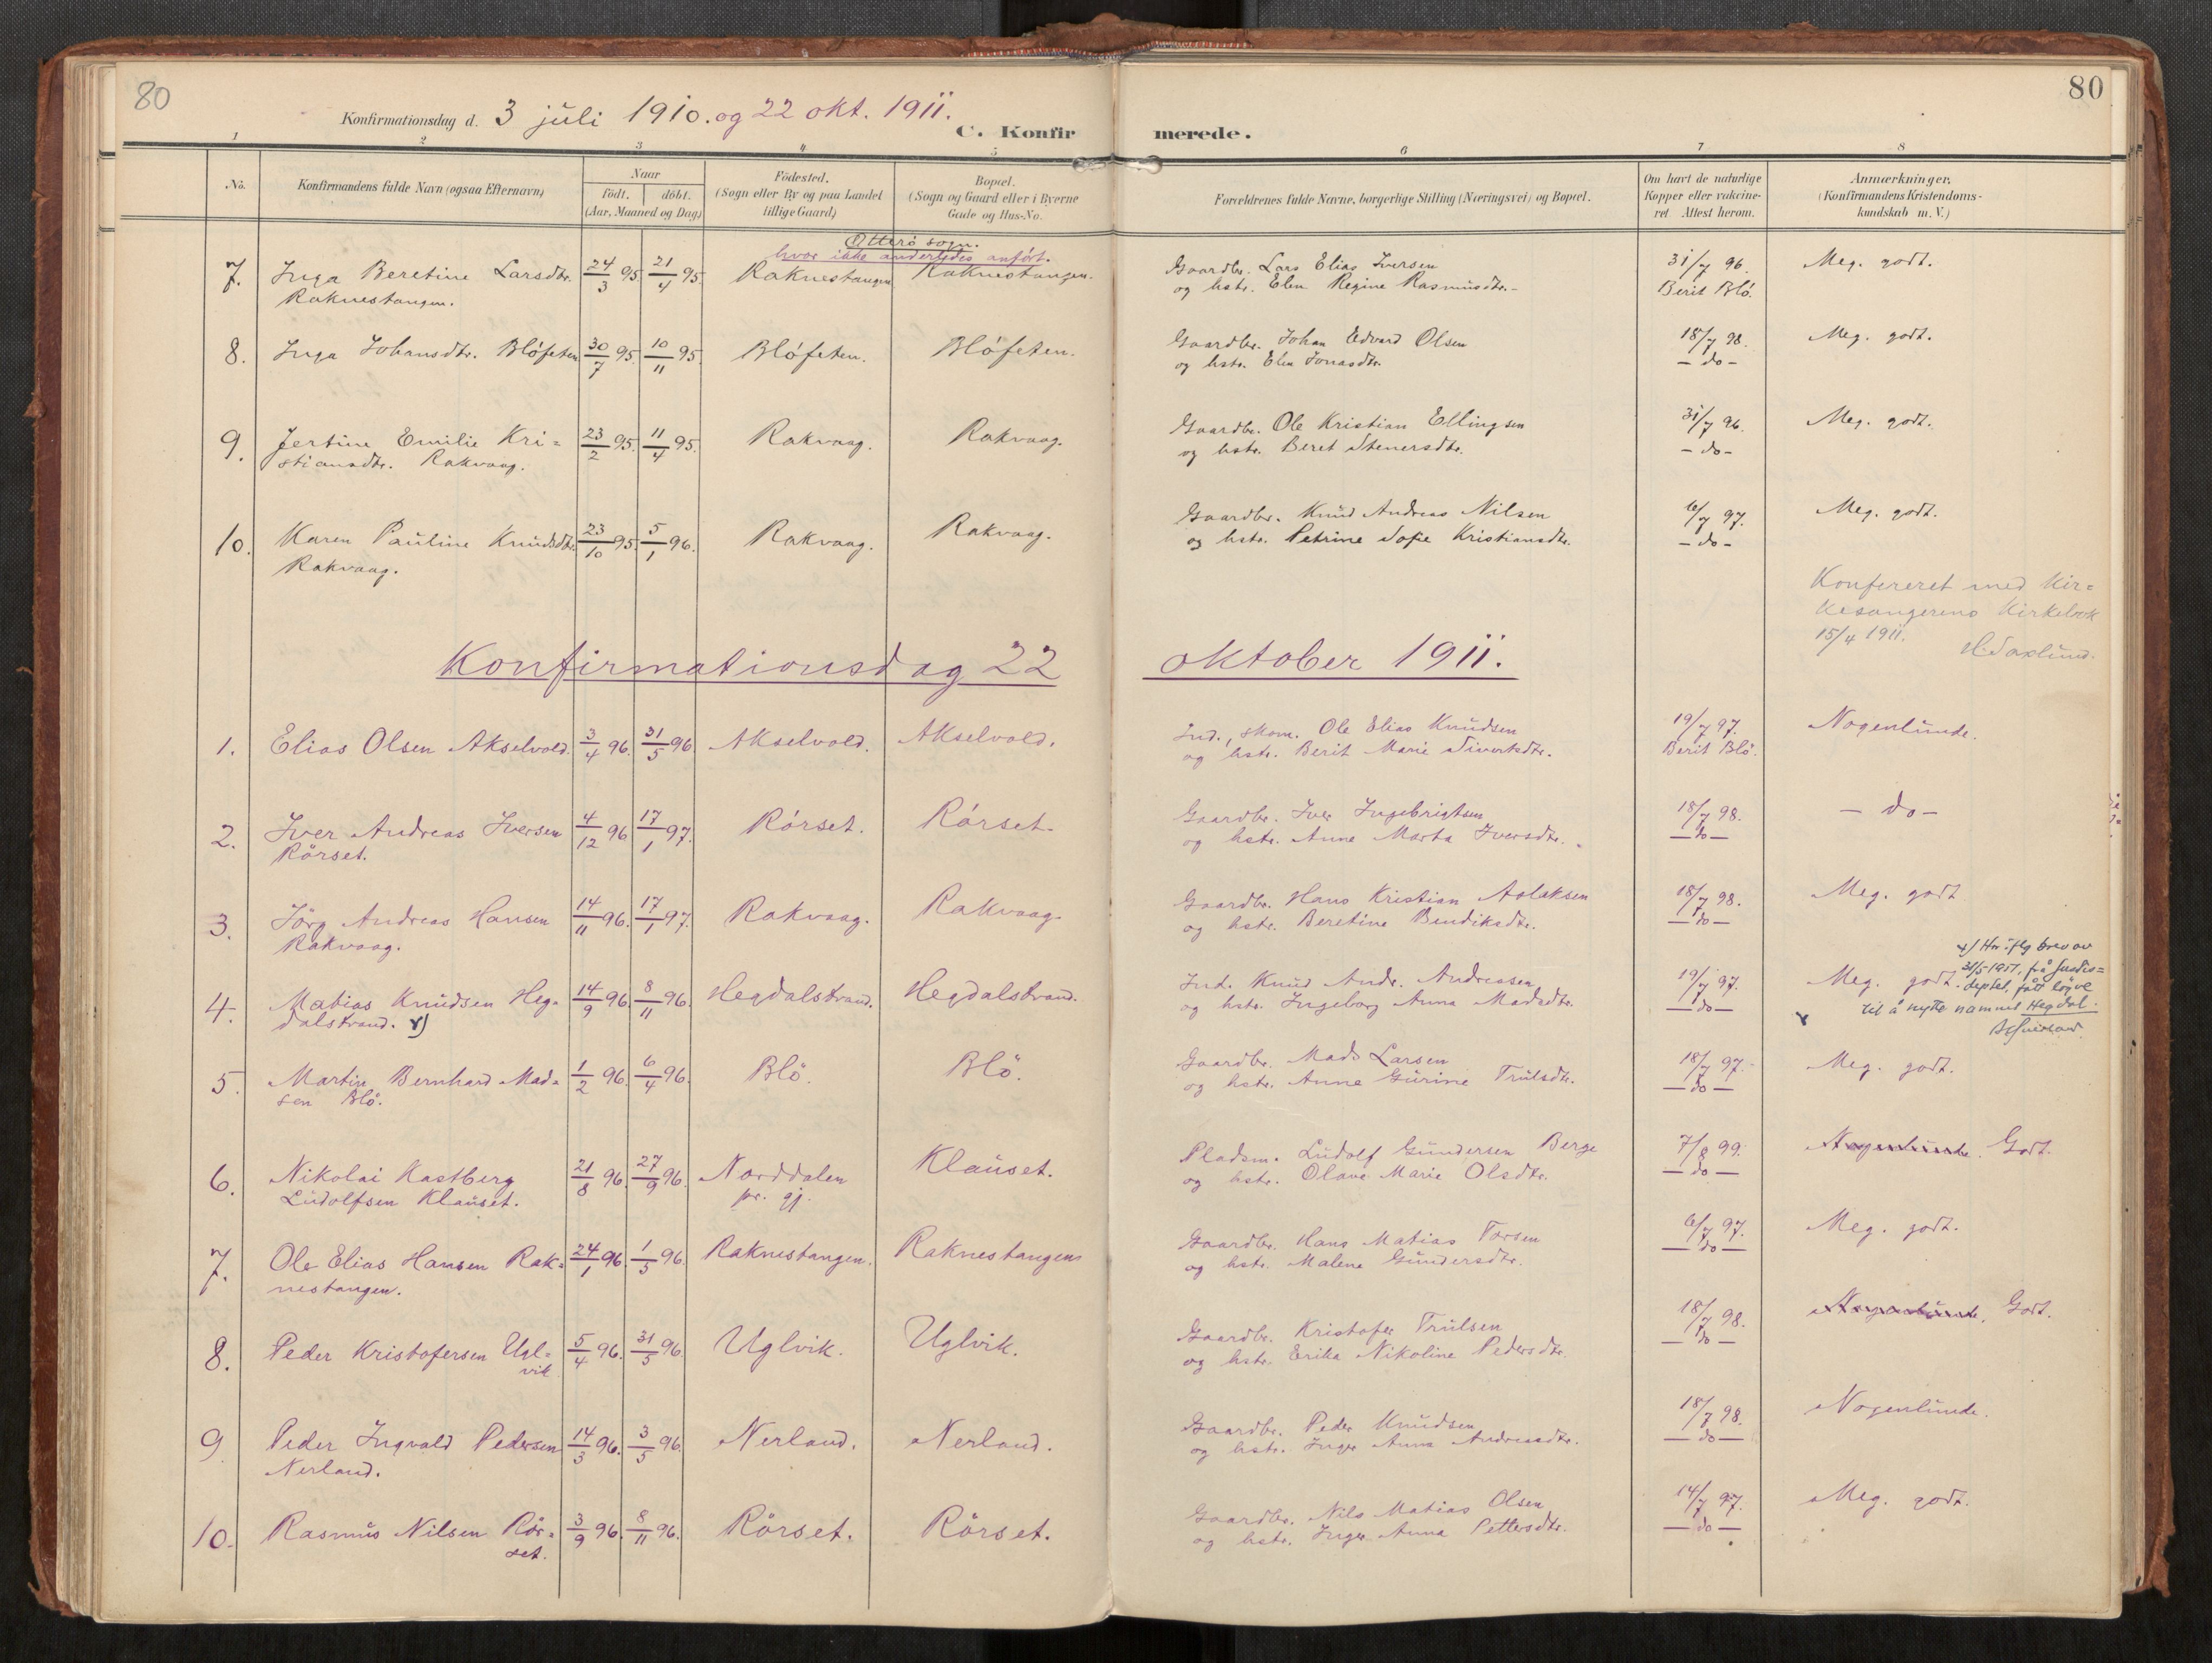 80
80
Konfirmationsdag d. 3 juli 1910. og 22 okt. 1911.
C. Konfirmerede.
1 2 3 4 5 6 7 8
No.
Konfirmandens fulde Navn (ogsaa Efternavn)
Naar
födt. döbt.
(Aar, Maaned og Dag)
Födested.
(Sogn eller By og paa Landet
tillige Gaard)
Bopæl.
(Sogn og Gaard eller i Byerne
Gade og Hus-No.
Forældrenes fulde Navne, borgerlige Stilling (Næringsvei) og Bopæl.
Om havt de naturlige
Kopper eller vakcine-
ret Attest herom.
Anmærkninger,
(Konfirmandens Kristendoms-
kundskab m. V.)
Otterö sogn.
hvor ikke anderledes anfört.
7. Inga Beretine Larsdtr. 24/3 95. 21/4 95. Raknestangen Raknestangen. Gaardbr. Lars Elias Iversen 31/7 96. Meg. godt.
Raknestangen. og hstr. Elen Regine Rasmusdtr. Berit Blö.
8. Inga Johansdtr. Blöfeten 30/7 95. 10/11 95. Blöfeten. Blöfeten. Gaardbr. Johan Edvard Olsen 18/7 98. Meg. godt.
og hstr. Elen Jonasdtr. - do -
9. Jertine Emilie Kri= 23/2 95. 11/4 95. Rakvaag. Rakvaag. Gaardbr. Ole Kristian Ellingsen 31/7 96. Meg. godt.
stiansdtr. Rakvaag. og hstr. Beret Stenersdtr. - do -
10. Karen Pauline Knudsdtr. 23/10 95. 5/1 96. Rakvaag. Rakvaag. Gaardbr. Knud Andreas Nilsen 6/7 97. Meg. godt.
Rakvaag. og hstr. Petrine Sofie Kristiansdtr. - do -
Konfereret med Kir=
kesangerens Kirkebok
15/4 1911. H. Saxlund.
Konfirmationsdag 22 oktober 1911.
1. Elias Olsen Akselvold. 3/4 96. 31/5 96 Akselvold. Akselvold. Ind., skom. Ole Elias Knudsen 19/7 97. Nogenlunde.
og hstr. Berit Marie Sivertsdtr. Berit Blö.
2. Iver Andreas Iversen 4/12 96. 17/1 97. Rörset. Rörset. Gaardbr. Iver Ingebrigtsen 18/7 98. - do -
Rörset. og hstr. Anne Marta Iversdtr. - do -
3. Jörg Andreas Hansen 14/11 96. 17/1 97. Rakvaag. Rakvaag. Gaardbr. Hans Kristian Aslaksen 18/7 98. Meg. godt
Rakvaag. og hstr. Beretine Bendiksdtr. - do -
4. Matias Knudsen Heg= 14/9 96. 8/11 96. Hegdalstrand. Hegdalstrand. Ind. Knud Andr. Andreasen 19/7 97. Meg. godt.
dalstrand. x) og hstr. Ingeborg Anna Madsdtr. - do -
x) Har iflg brev av
31/5 1951, frå Justis=
deptet, fått löyve
til å nytte namnet Hegdal.
5. Martin Bernhard Mad= 1/2 96. 6/4 96. Blö. Blö. Gaardbr. Mads Larsen 18/7 97. Meg. godt.
sen Blö. og hstr. Anne Gurine Trulsdtr. - do -
6. Nikolai Kastberg 21/8 96. 27/9 96. Norddalen Klauset. Pladsm. Ludolf Gundersen Berge 7/8 99. Nogenlunde. Godt.
Ludolfsen Klauset. pr. gj. og hstr. Olave Marie Olsdtr. - do -
7. Ole Elias Hansen Rak= 24/1 96. 1/5 96. Raknestangen. Raknestangen Gaardbr. Hans Matias Torsen 6/7 97. Meg. godt.
nestangen. og hstr. Malene Gundersdtr. - do -
8. Peder Kristofersen Ugl= 5/4 96. 31/5 96. Uglvik. Uglvik. Gaardbr. Kristofer Trulsen 18/7 98. Nogenlunde. Godt.
vik og hstr. Erika Nikoline Pedersdtr. - do -
9. Peder Ingvald Pedersen 14/3 96. 3/5 96. Nerland. Nerland. Gaardbr. Peder Knudsen 18/7 98. Nogenlunde.
Nerland. og hstr. Inger Anna Andreasdtr. - do -
10. Rasmus Nilsen Rör= 3/9 96. 8/11 96. Rörset. Rörset. Gaardbr. Nils Matias Olsen 14/7 97. Meg. godt.
set. og hstr. Inger Anna Pettersdtr. - do -